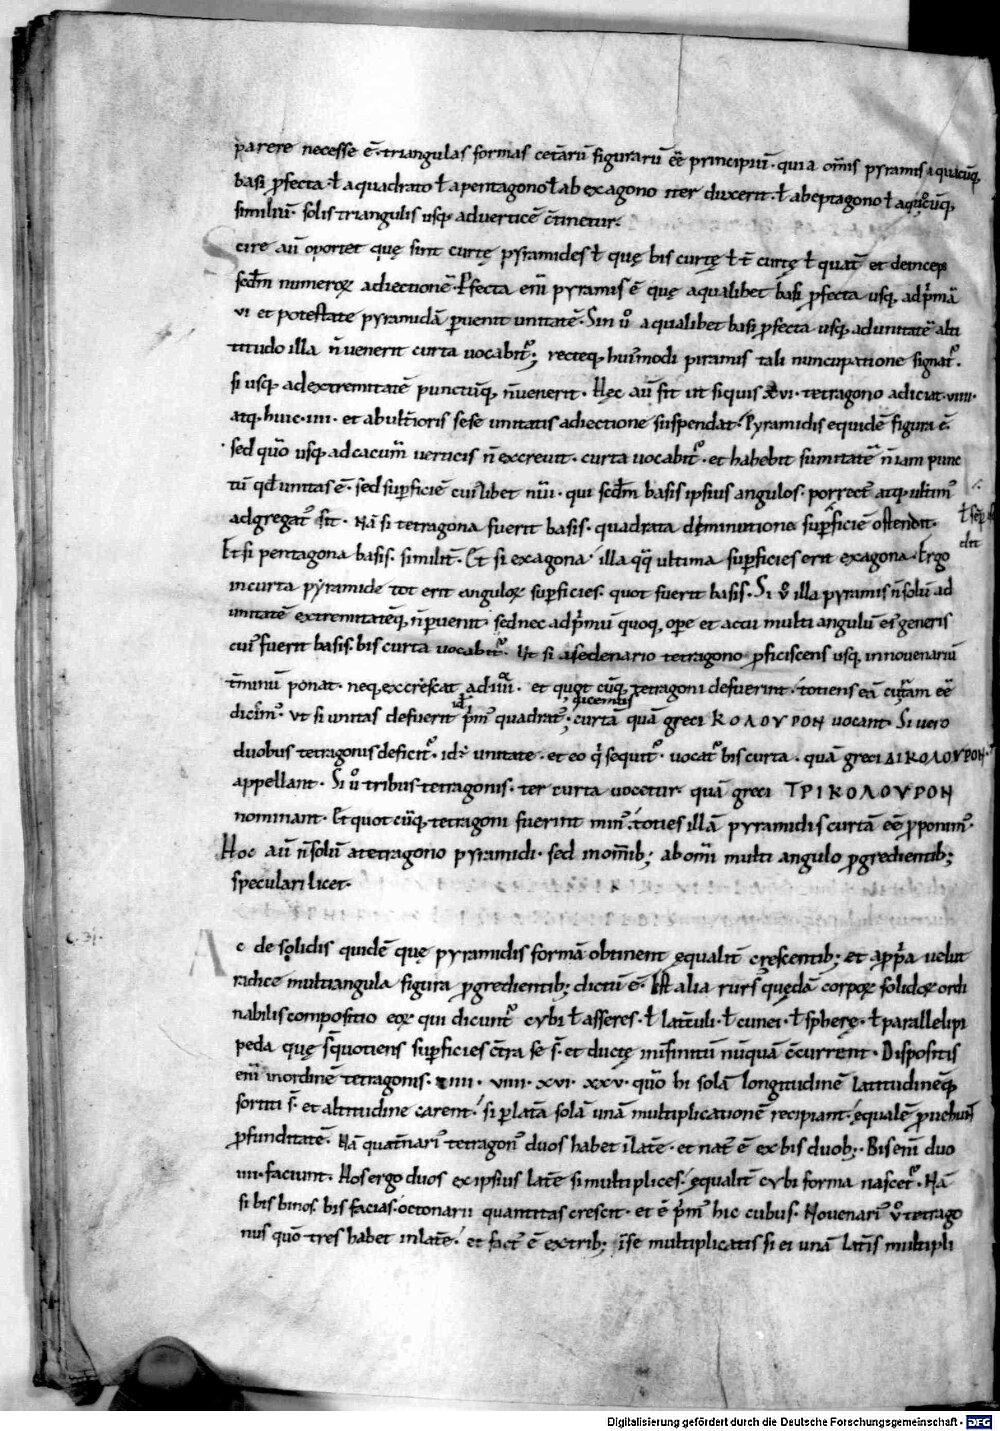 parere necesse ē· triangulas formas cetarū figurarū eē principiū· quia om̄is pyramis a quacūq;
basi pfecta· ł a quadrato ł a pentagono ł ab exagono iter duxerit· ł ab eptagono ł a quocūq;
similiū· solis triangulis usq; ad verticē c̄tinetur·
Scire aū oportet quę sint curtę pyramides ł quę bis curtę ł t̄ curtę ł quat̄ et deinceps
scd̄m numeroꝝ adiectionē· Pfecta eni pyramis ē quę a qualibet basi pfecta usq; ad p̄mā
vi et potestate pyramidā puenit unitatē· Sin ů a qualibet basi pfecta usq; ad unitatē alti
titudo illa n̄ venerit curta vocabit᷒; recteq; hui᷒modi piramis tali nuncupatione signat᷒·
si usq; ad extremitatē punctūq; n̄ venerit· Hęc aū sit ut siquis xvi· tetragono adiciat· viiii·
atq; huic· iiii· et ab ult̄ioris sese unitatis adiectione suspendat· Pyramidis equidē figura ē·
sed qūo usq; ad cacum̄ verticis n̄ excreuit· curta vocabit᷒· et habebit sumitatē n̄ iam punc
tū qd̄ unitas ē· sed supficiē cui᷒libet nūi· qui scd̄m basis ipsius angulos· porrect᷒ atq; ultim᷒
adgregat᷒ sit· Nā si tetragona fuerit basis· quadrata deminutione supficiē ostendit·
ł sēp
dit
Et si pentagona basis similit̄· Et si exagona· illa qq̄ ultima supficies erit exagona· Ergo
in curta pyramide tot erit anguloꝝ supficies· quot fuerit basis· Si ů illa pyramis n̄ solū ad
unitatē extremitatēq; n̄ puenit· sed nec ad p̄mū quoq; ope et actu multi angulū ei᷒ generis
cui᷒ fuerit basis· bis curta vocabit᷒· Ut si a sedenario tetragono pficiscens usq; in novenariū
t̄minū ponat· neq; excrescat ad iiii· et quot cūq; tetragoni defuerint· totiens eā curtam eē
dicim᷒· ut si unitas defuerit p̄m᷒ quadrat᷒· dicemus curtā quā greci ΚΟΛΟΥΡΟΝ vocant· Si vero
duobus tetragonis deficit᷒· id ē unitate· et eo q̄ sequit᷒· vocat᷒ bis curta· quā greci ΔΙΚΟΛΟΥΡΟΝ·
appellant· Si ů tribus tetragonis· ter curta vocetur quā greci ΤΡΙΚΟΛΟΥΡΟΝ
nominant· Et quot cūq; tetragoni fuerint min᷒· toties illā pyramidis curtā eē pponim᷒·
Hoc aū n̄ solū a tetragono pyramidi· sed in om̄ib; ab om̄i multi angulo pgredientib;
speculari licet·
c· 31·
Ac de solidis quidē quę pyramidis formā obtinent ęqualit̄ crescentib; et a ppā velut
radice multiangula figura pgredientib; dictū ē· Est alia rurs᷒ quędā corpoꝝ solidoꝝ ordi
nabilis compositio eoꝝ qui dicunt᷒ cybi ł asseres· ł lat̄culi· ł cunei· ł sphere· ł parallelipi
peda quę s̄ quotiens supficies c̄tra se s̄· et ductę infinitū nūquā c̄current· Dispositis
eni in ordinē tetragonis· iiii· viiii· xvi· xxv· quō hi solā longitudinē latitudinēq;
sortiti s̄· et altitudine carent· si p latā solā unā multiplicationē recipiant· ęqualē pvehunt
pfunditatē· Nā quat̄nari᷒ tetragon᷒ duos habet in lat̄e· et nat᷒ ē ex bis duob;· Bis eni duo
iiii· faciunt· Hos ergo duos ex ipsius lat̄e si multiplices· ęqualit̄ cybi forma nascet᷒· Nā
si bis binos bis facias· octonarii quantitas crescit· et ē p̄m᷒ hic cubus· Novenari᷒ ů tetrago
nus quō tres habet in lat̄e· et fact᷒ ē ex trib; in se multiplicatis si ei unā lat̄is multipli
Digitalisierung gefördert durch die Deutsche Forschungsgemeinschaft - DFG